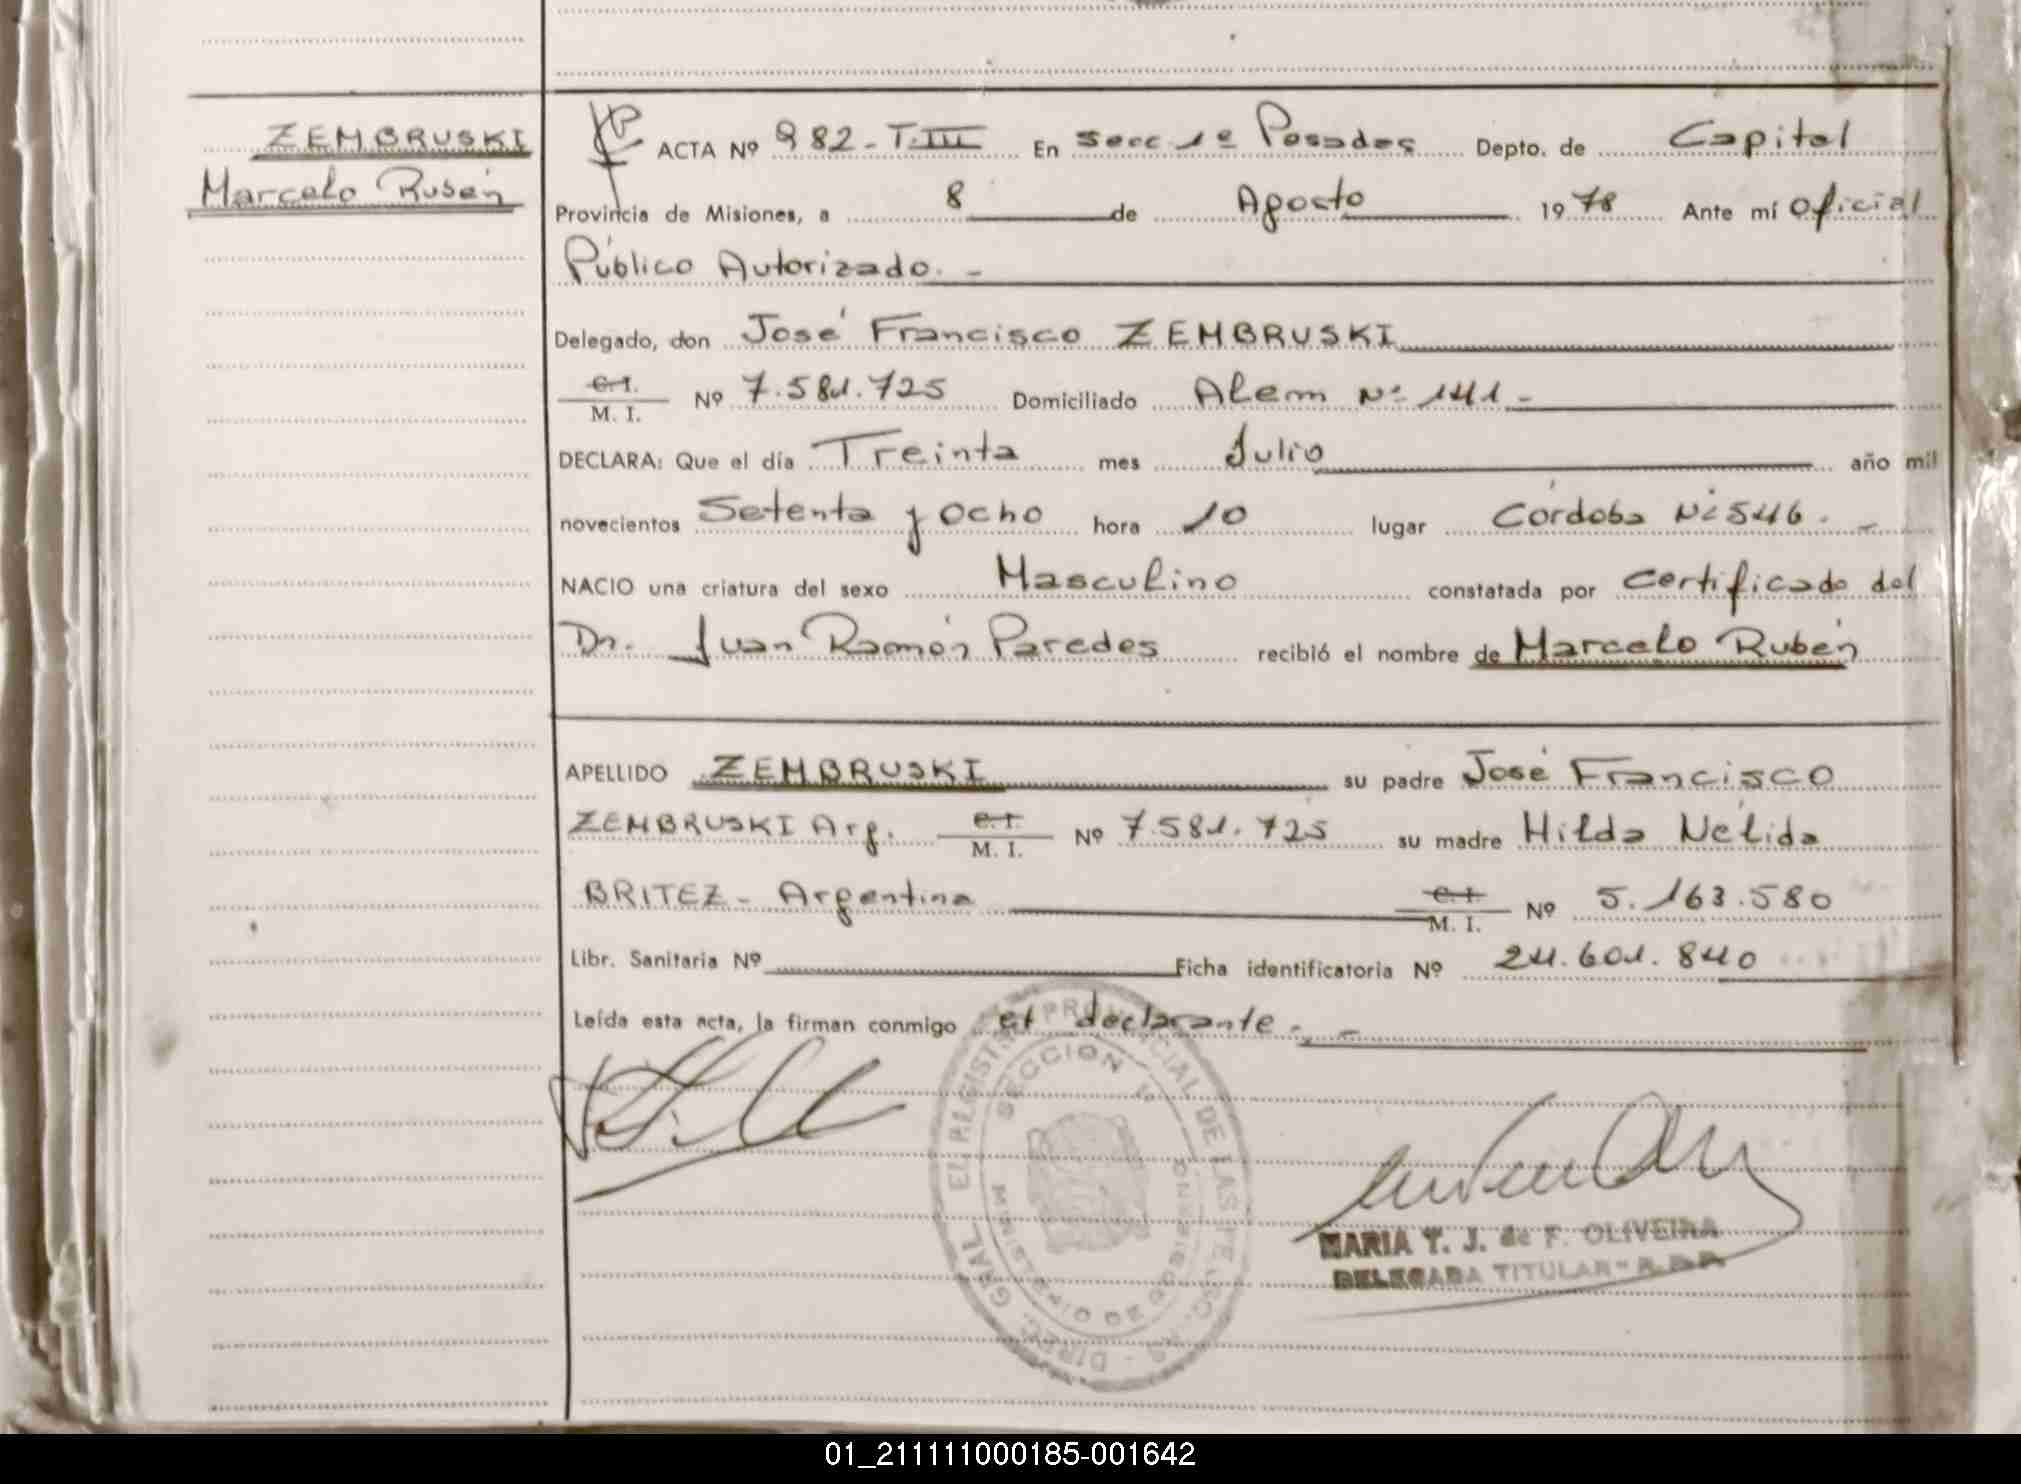 ZEMBRUSKI
Marcelo Rubén
ACTA Nº 982-T.III En Secc 1º Posadas Depto. de Capital
Provincia de Misiones, a 8 de Agosto 1978 Ante mí Oficial
Público Autorizado. -
Delegado, don José Francisco ZEMBRUSKI
C.I.
M. I. Nº 7.581.725 Domiciliado Alem Nº 141 -
DECLARA: Que el día Treinta mes Julio año mil
novecientos Setenta y Ocho hora 10 lugar Córdoba Nº 546. -
NACIO una criatura del sexo Masculino constatada por Certificado del
Dr. Juan Ramón Paredes recibió el nombre de Marcelo Rubén
APELLIDO ZEMBRUSKI su padre José Francisco
ZEMBRUSKI Arg. C.I.
M. I. Nº 7.581.725 su madre Hilda Nélida
BRITEZ - Argentina C.I.
M. I. Nº 5.163.580
Libr. Sanitaria Nº Ficha identificatoria Nº 24.601.840
Leída esta acta, la firman conmigo el declarante. -
SECCION 1º
MARIA T. J. de F. OLIVEIRA
DELEGADA TITULAR - R.D.P.
01_211111000185-001642